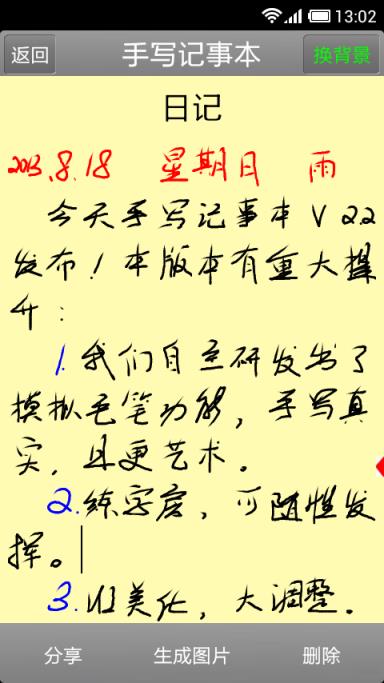 13:02
返回 手写记事本 换背景
日记
2013.8.18 星期日 雨
今天手写记事本V2.2
发布！本版本有重大提
升：
1.我们自主研发出了
模拟毛笔功能，手写真
实，且更艺术。
2.练字居，可随性发
挥。
3.UI美化，大调整。
分享 生成图片 删除